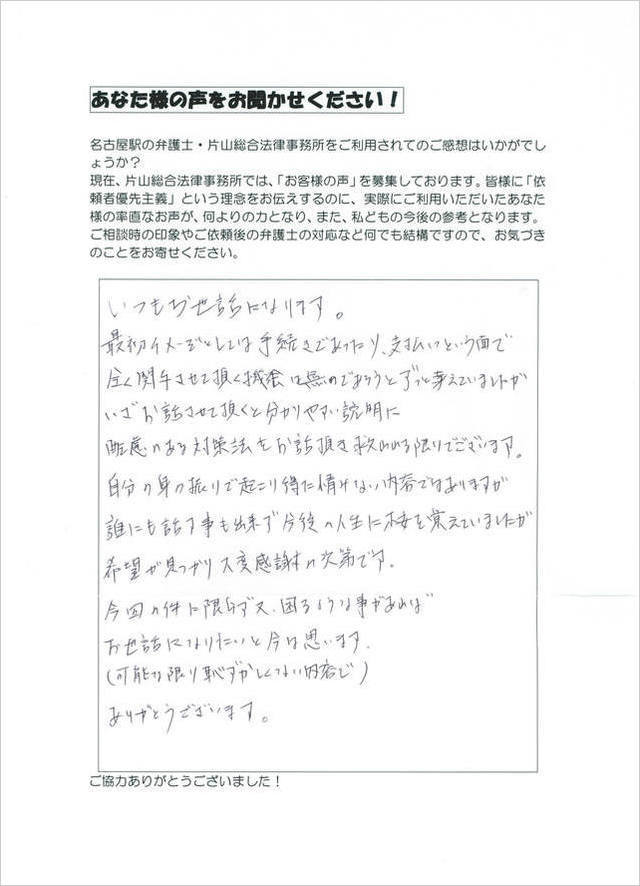 あなた様の声をお聞かせください！
名古屋駅の弁護士・片山総合法律事務所をご利用されてのご感想はいかがでし
ょうか？
現在、片山総合法律事務所では、「お客様の声」を募集しております。皆様に「依
頼者優先主義」という理念をお伝えするのに、実際にご利用いただいたあなた
様の率直なお声が、何よりの力となり、また、私どもの今後の参考となります。
ご相談時の印象やご依頼後の弁護士の対応など何でも結構ですので、お気づき
のことをお寄せください。
いつもお世話になります。
最初イメージとしては手続きであったり、支払いという面で
全く関与させて頂く機会は無のであろうとずっと考えていましたが
いざお話させて頂くと分かりやすい説明に
のある対策法をお話頂き救われる限りでございます。
自分の身の振りで起こり得た情けない内容ではありますが
誰にも話す事も出来ず今後の人生に を覚えていましたが
希望が見つかり大変感謝の次第です。
今回の件に限らず又、困るような事があれば
お世話になりたいと今は思います。
(可能な限り恥ずかしくない内容で)
ありがとうございます。
ご協力ありがとうございました！